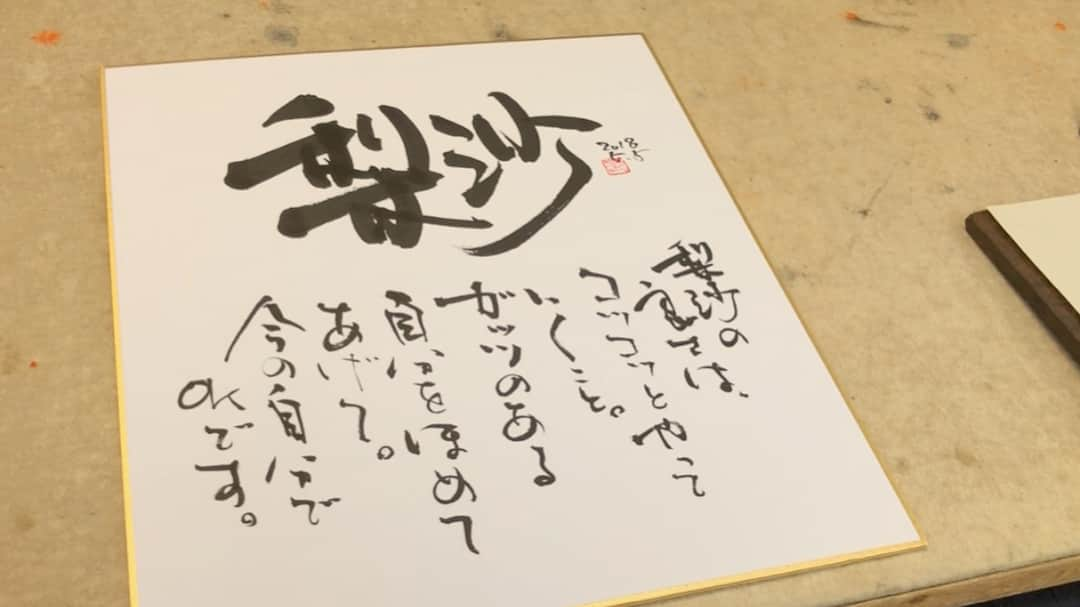 梨沙
2018
5.5
梨沙の
は、
コツコツとやって
いくこと。
ガッツのある
自分をほめて
あげて。
今の自分で
OKです。